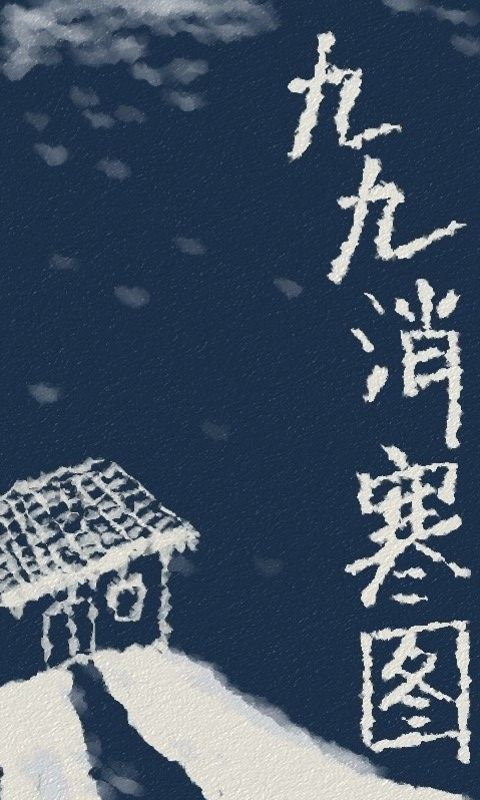 九九消寒图